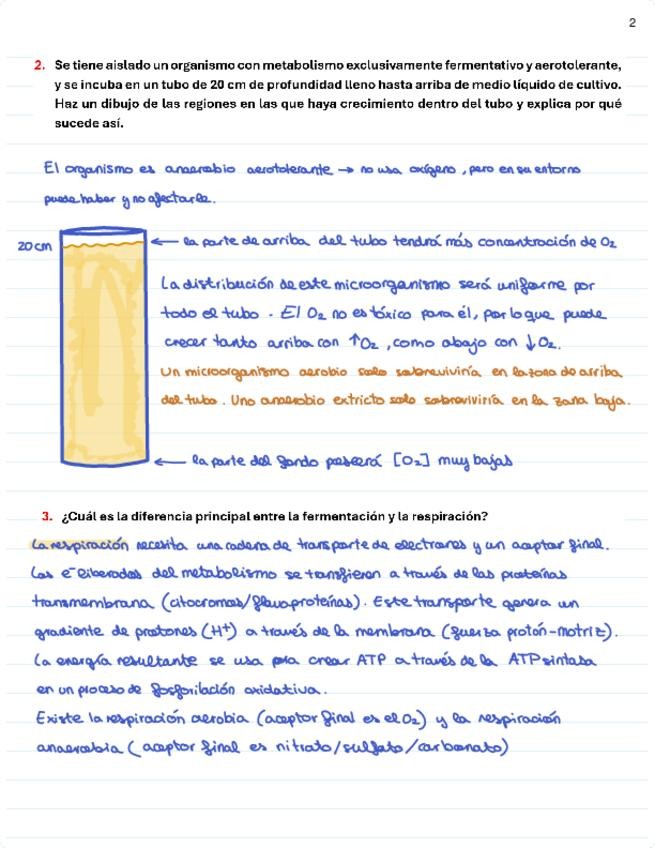 2
2. Se tiene aislado un organismo con metabolismo exclusivamente fermentativo y aerotolerante,
y se incuba en un tubo de 20 cm de profundidad lleno hasta arriba de medio líquido de cultivo.
Haz un dibujo de las regiones en las que haya crecimiento dentro del tubo y explica por qué
sucede así.
El organismo es anaerobio aerotolerante → no usa oxígeno, pero en su entorno
puede haber y no afectarle.
20 cm
← la parte de arriba del tubo tendrá más concentración de O₂
La distribución de este microorganismo será uniforme por
todo el tubo. El O₂ no es tóxico para él, por lo que puede
crecer tanto arriba con ↑O₂, como abajo con ↓O₂.
Un microorganismo aerobio solo sobreviviría en la zona de arriba
del tubo. Uno anaerobio extricto solo sobreviviría en la zona baja.
← la parte del fondo poseerá [O₂] muy bajas
3. ¿Cuál es la diferencia principal entre la fermentación y la respiración?
La respiración necesita una cadena de transporte de electrones y un aceptor final.
Los e⁻ liberados del metabolismo se transfieren a través de las proteínas
transmembrana (citocromos/flavoproteínas). Este transporte genera un
gradiente de protones (H⁺) a través de la membrana (fuerza protón-motriz).
La energía resultante se usa pra crear ATP a través de la ATP sintasa
en un proceso de fosforilación oxidativa.
Existe la respiración aerobia (aceptor final es el O₂) y la respiración
anaerobia (aceptor final es nitrato/sulfato/carbonato)